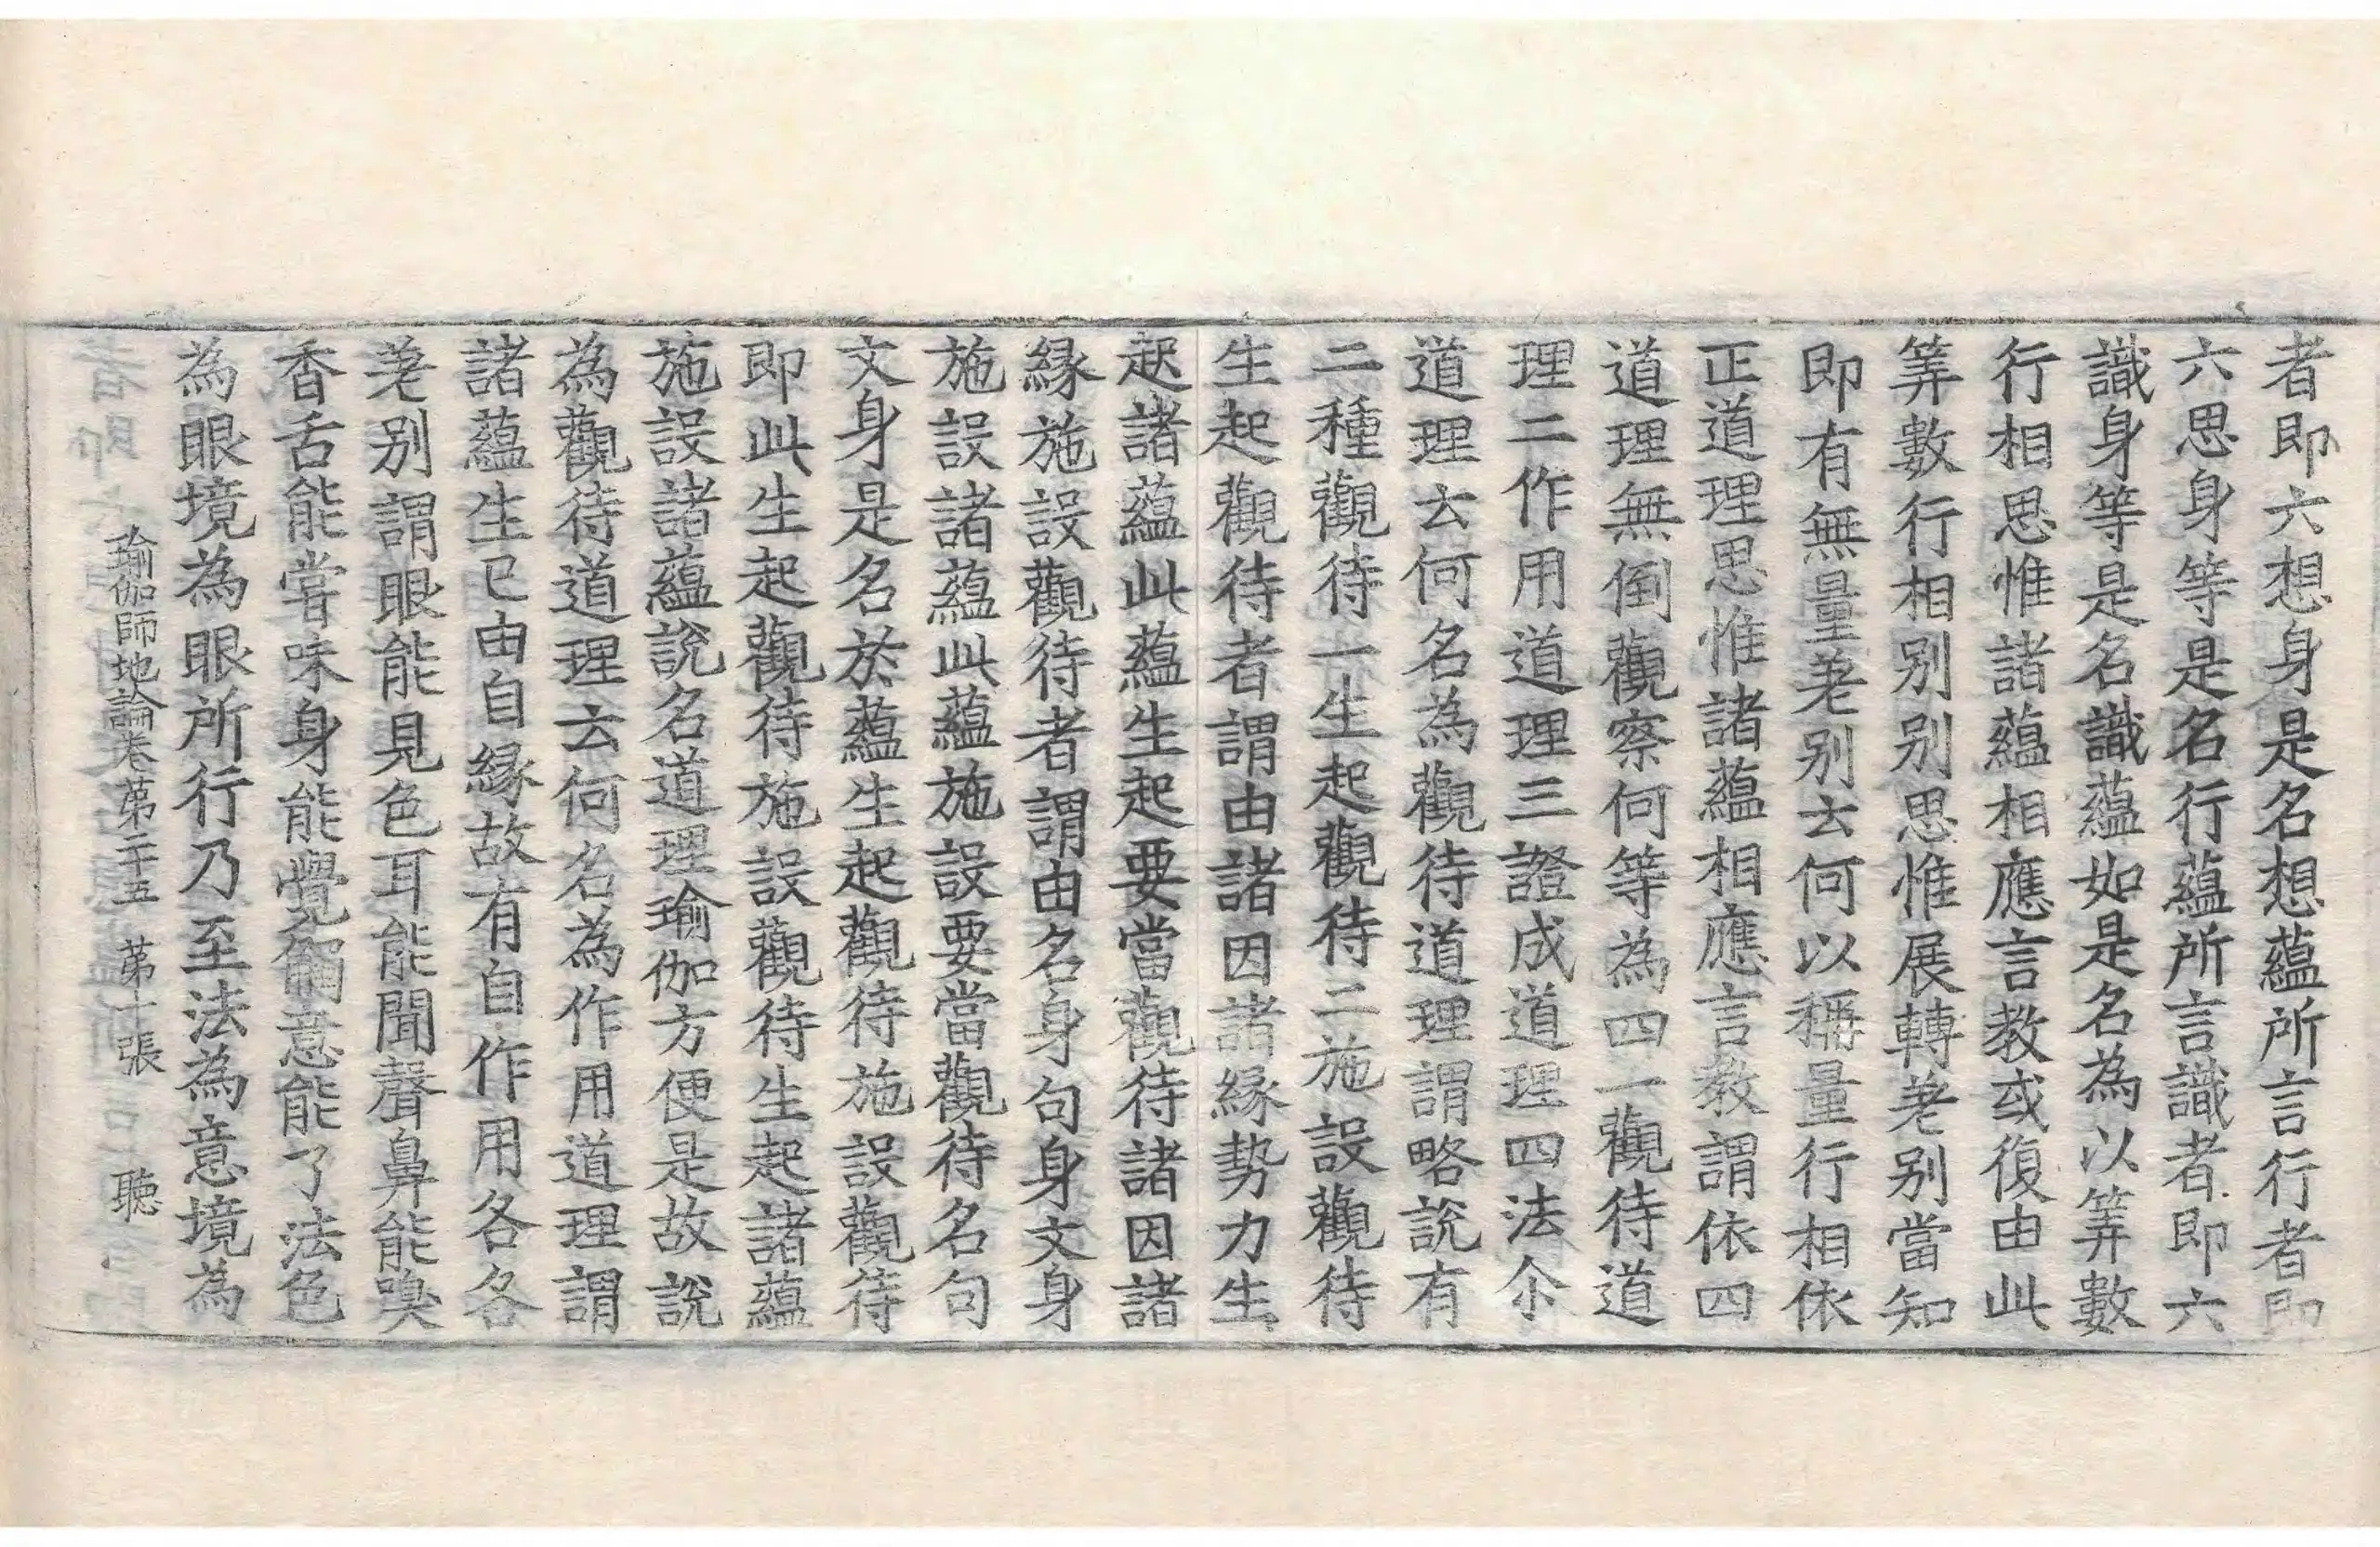 者即六想身是名想蘊所言行者即
六思身等是名行蘊所言識者即六
識身等是名識蘊如是名為以筭數
行相思惟諸蘊相應言教或復由此
筭數行相别别思惟展轉差别當知
即有無量差别云何以稱量行相依
正道理思惟諸蘊相應言教謂依四
道理無倒觀察何等為四一觀待道
理二作用道理三證成道理四法尒
道理云何名為觀待道理謂略說有
二種觀待一生起觀待二施設觀待
生起觀待者謂由諸因諸緣勢力生
起諸蘊此蘊生起要當觀待諸因諸
緣施設觀待者謂由名身句身文身
施設諸蘊此蘊施設要當觀待名句
文身是名於蘊生起觀待施設觀待
即此生起觀待施設觀待生起諸蘊
施設諸蘊說名道理瑜伽方便是故說
為觀待道理云何名為作用道理謂
諸蘊生已由自緣故有自作用各各
差别謂眼能見色耳能聞聲鼻能嗅
香舌能嘗味身能覺觸意能了法色
為眼境為眼所行乃至法為意境為
瑜伽師地論卷苐二十五 苐十張 聴